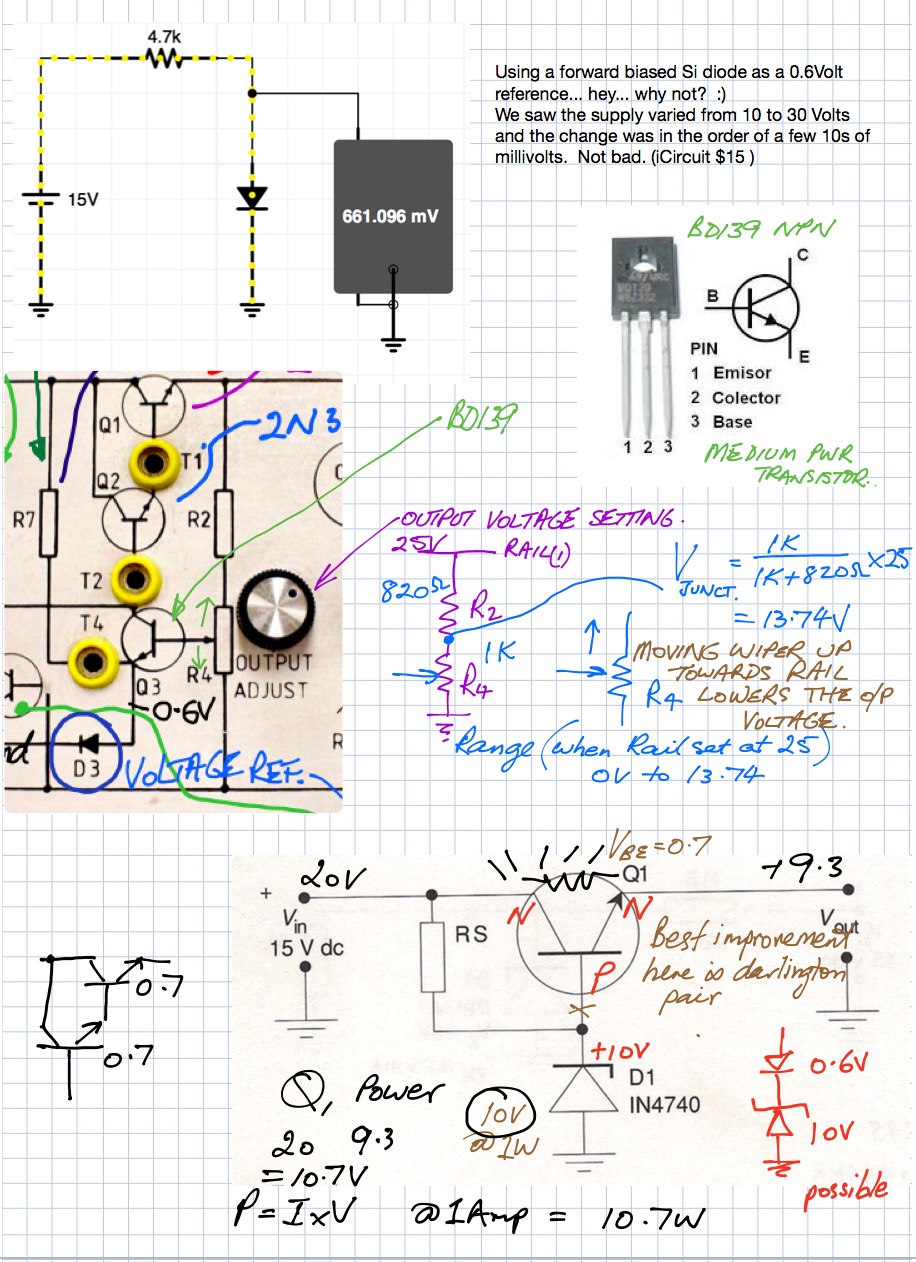 4.7k
15V
661.096 mV
Using a forward biased Si diode as a 0.6Volt
reference... hey... why not?  :)
We saw the supply varied from 10 to 30 Volts
and the change was in the order of a few 10s of
millivolts.  Not bad. (iCircuit $15 )
BD139 NPN
C
B
E
PIN
1 Emisor
2 Colector
3 Base
1 2 3
MEDIUM PWR
TRANSISTOR.
Q1
2N3
BD139
T1
Q2
R7
R2
T2
T4
OUTPUT
ADJUST
R4
Q3
-0.6V
D3
VOLTAGE REF.
OUTPUT VOLTAGE SETTING.
25V RAIL(1)
820Ω
R2
1K
R4
V JUNCT. = 1K / 1K+820Ω X25
= 13.74V
MOVING WIPER UP
TOWARDS RAIL
R4 LOWERS THE O/P
VOLTAGE.
Range (when Rail set at 25)
0V to 13.74
VBE=0.7
+ 20V
Q1
+9.3
Vin
15 V dc
RS
N N
P
Vout
Best improvement
here is darlington
pair
0.7
0.7
+10V
D1
IN4740
10V
@1W
0.6V
10V
possible
Q, Power
20 9.3
= 10.7V
P = I x V @ 1Amp = 10.7W